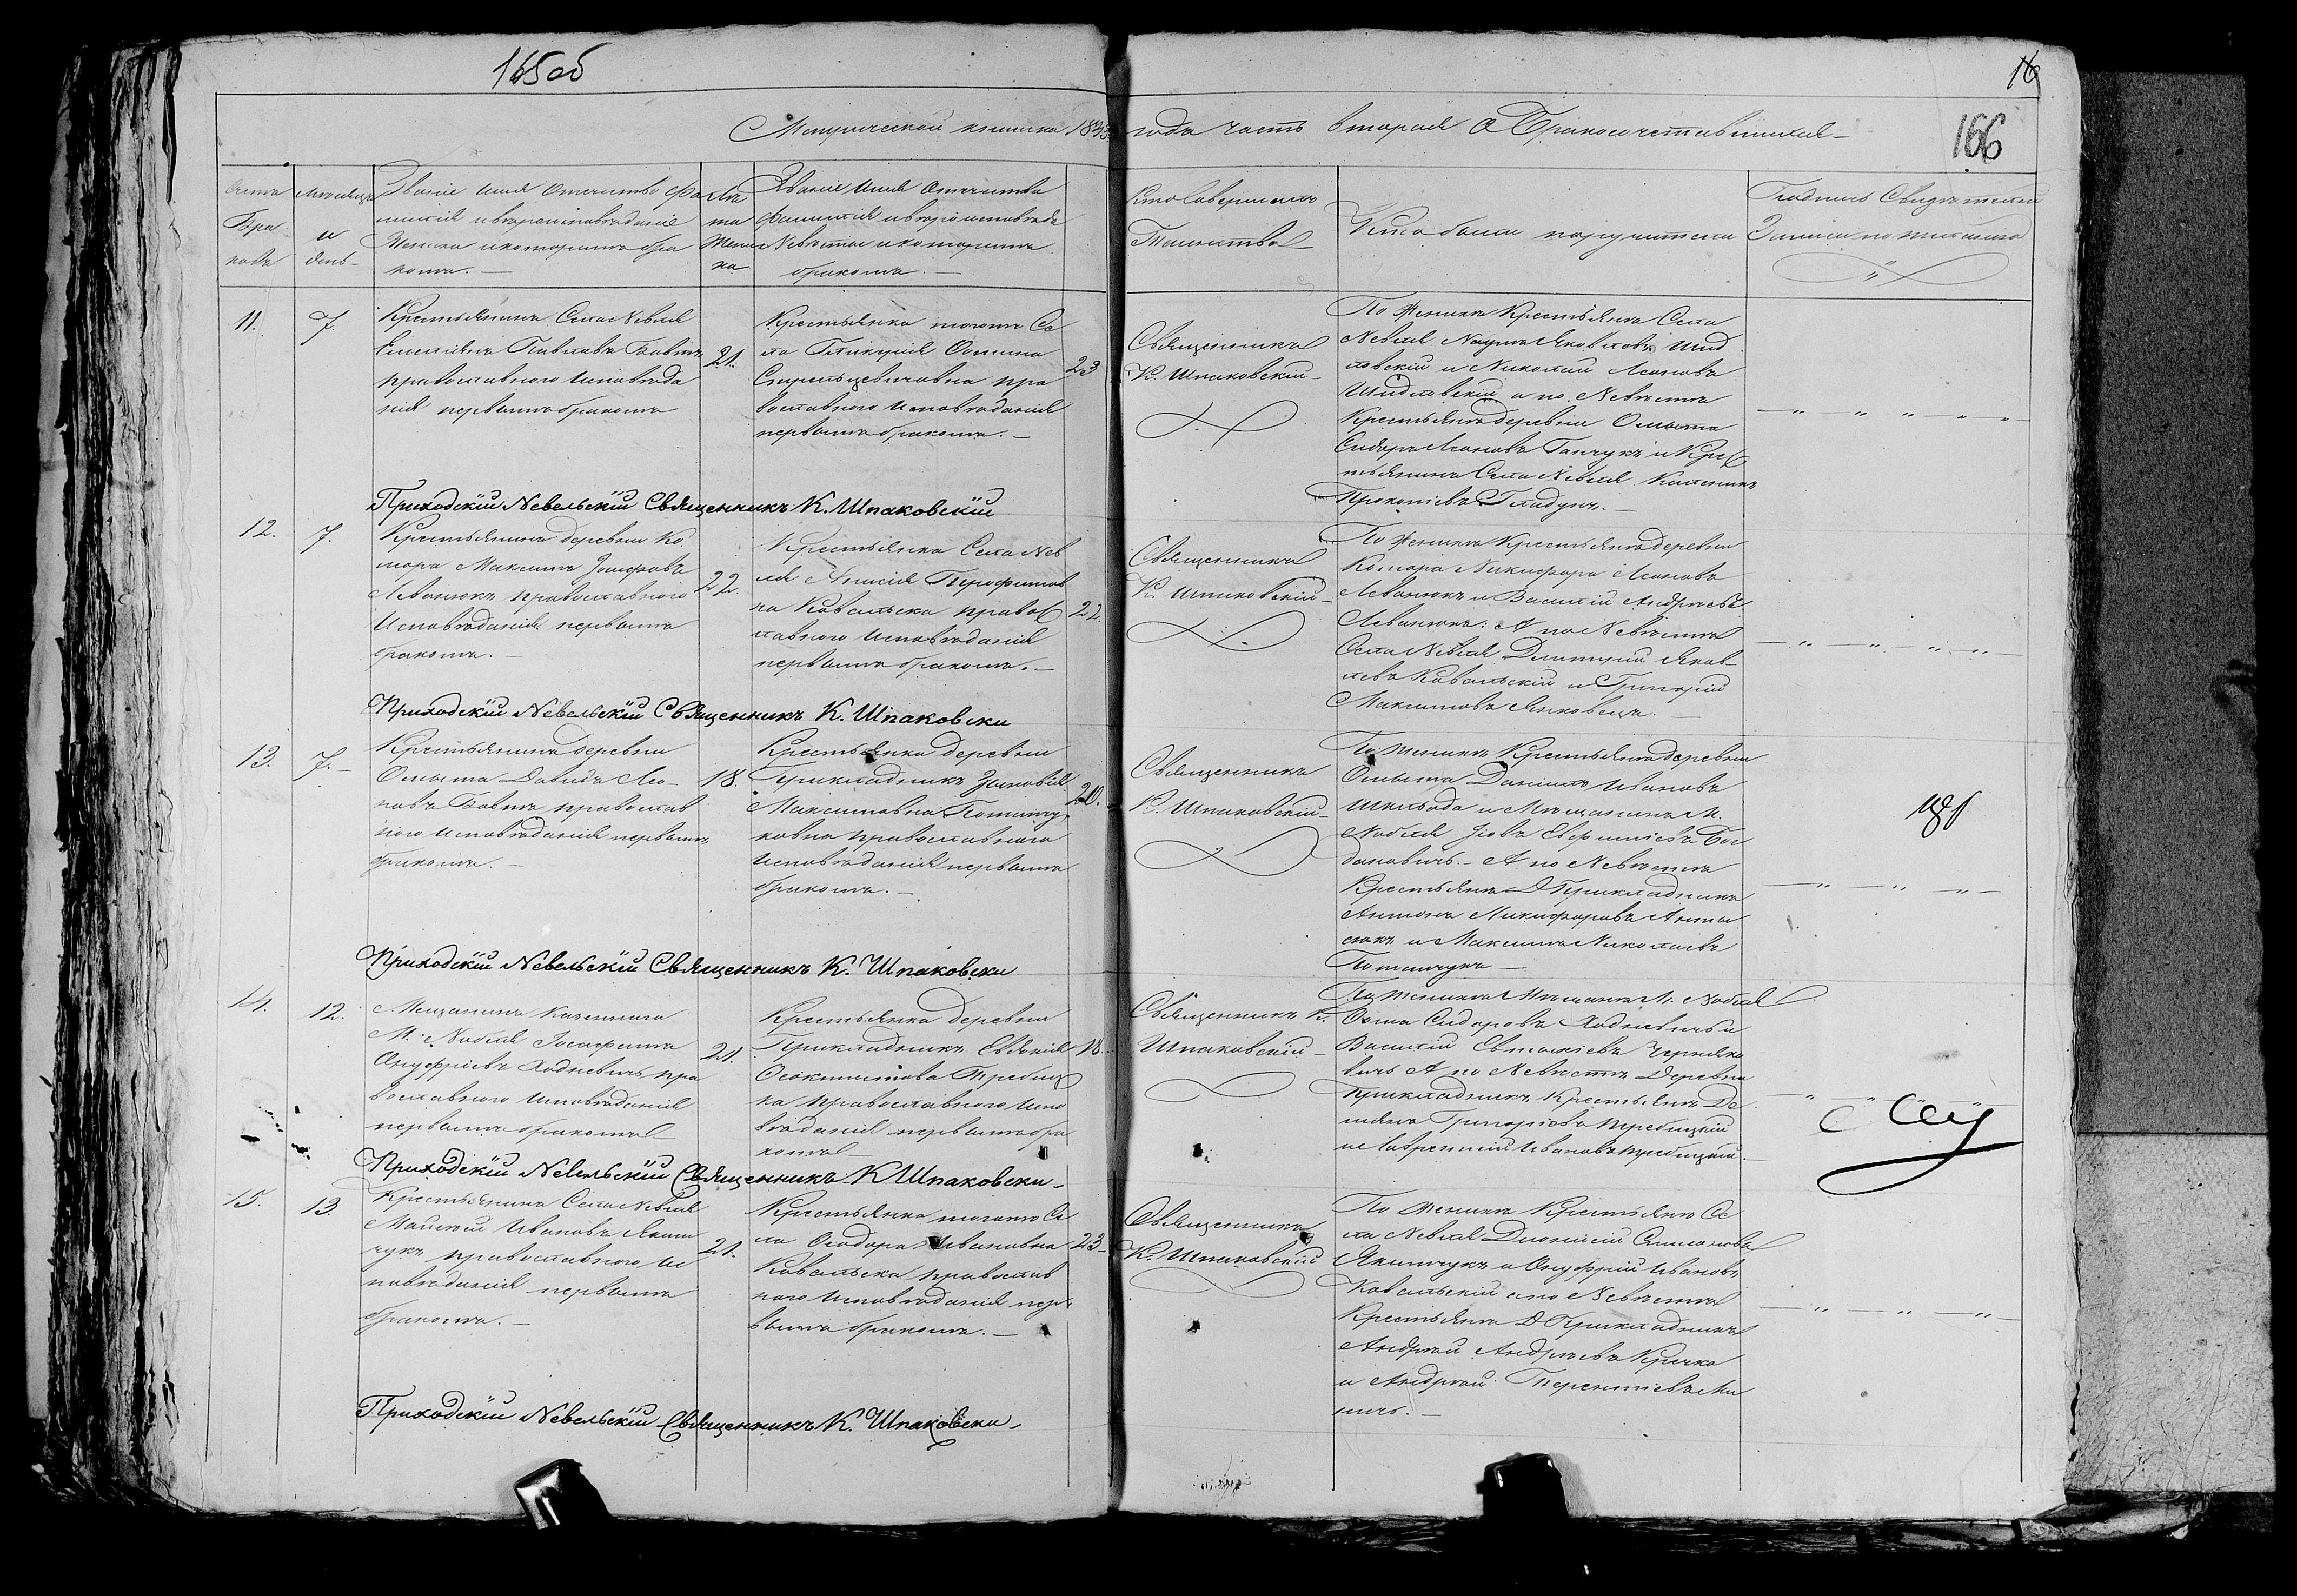 165об
16
166
Метрической книги 183
года часть вторая О Бракосочетавшихся
Счетъ
Бра
ковъ
Месяцъ
и
день
Званіе имя Отечество Фа
милія и вероисповеданіе
Жениха и которымъ бра
комъ.
Ле
та
Жени
ха
Званіе Имя Отечество
фамилія и вероисповед
Невесты и которымъ
бракомъ.
Кто Совершалъ
Таинство
Кто были поручители
Подпись Свидетелей
Записи по желанію
11.
7.
Крестьянинъ Села Невля
Емеліянъ Павловъ
православного Исповеда
нія первымъ бракомъ
21.
Крестьянка тогожъ Се
ла Гликерія Осипова
Стрельцевичовна пра
вославного Исповеданія
первымъ бракомъ.
23
Священникъ
К. Шпаковскій
По Жениху Крестьяне Села
Невля Наумъ Яковлевъ Шид
ловскій и Николай
Шидловскій а по Невесте
Крестьяне деревни
Сидоръ и Крес
тьянинъ Села Невля
Прокопіевъ Гладунъ.
Приходскій Невельскій Священникъ К. Шпаковскій
12.
7.
Крестьянинъ деревни Ко
мора Максимъ
Леванюкъ православного
Исповеданія первымъ
бракомъ.
22.
Крестьянка Села Нев
ля Анисія Трофимов
на Ковальска правос
лавного Исповеданія
первымъ бракомъ.
22.
Священникъ
К. Шпаковскій
По Жениху Крестьяне деревни
Комора Никифоръ
Леванюкъ и Василій Андреевъ
Леванюкъ: А по Невесте
Села Невля Дмитрій Яков
левъ Ковальскій и Григорій
Максимовъ Янковецъ.
Приходскій Невельскій Священникъ К. Шпаковски
13.
7.
Крестьянинъ деревни
Давидъ
православ
ного Исповеданія первымъ
бракомъ.
18.
Крестьянка деревни
Прикладникъ Зиновія
Максимовна Потапчу
ковна православного
Исповеданія первымъ
бракомъ.
20.
Священникъ
К. Шпаковскій
По Жениху Крестьяне деревни
Даніилъ Ивановъ
и Мещанинъ М.
Нобля Іовъ Бог
дановичъ. А по Невесте
Крестьяне Д Прикладникъ
Антонъ Никифоровъ
и Максимъ Николаевъ
Потапчукъ
Приходскій Невельскій Священникъ К. Шпаковски
14.
12.
Мещанинъ Казенного
М. Нобля Іосафатъ
Онуфріевъ Ходневичъ пра
вославного Исповеданія
первымъ бракомъ
21.
Крестьянка деревни
Прикладникъ Евдокія
Требиц
ка православного Испо
веданія первымъ бра
комъ
18.
Священникъ К.
Шпаковскій
По Жениху Мещане М. Нобля
Сидоровъ Ходневичъ и
Василій Черняко
вичъ А по Невесте Деревни
Прикладникъ Крестьяне Де
міянъ Григоріевъ Требицкій
и Лаврентій Ивановъ Требицкій.
Приходскій Невельскій Священникъ К Шпаковски
15.
13.
Крестьянинъ Села Невля
Мойсей Ивановъ Яким
чукъ православного Ис
поведанія первымъ
бракомъ.
21.
Крестьянка тогожъ Се
ла Феодора Ивановна
Ковальска православ
ного Исповеданія пер
вымъ бракомъ.
23
Священникъ
К. Шпаковскій
По Жениху Крестьяне Се
ла Невля Діонисій
Якимчукъ и Онуфрій Ивановъ
Ковальскій а по Невесте
Крестьяне Д Прикладникъ
Андрей Андреевъ Кричко
и Андрей Терентіевъ
Приходскій Невельскій Священникъ К. Шпаковски